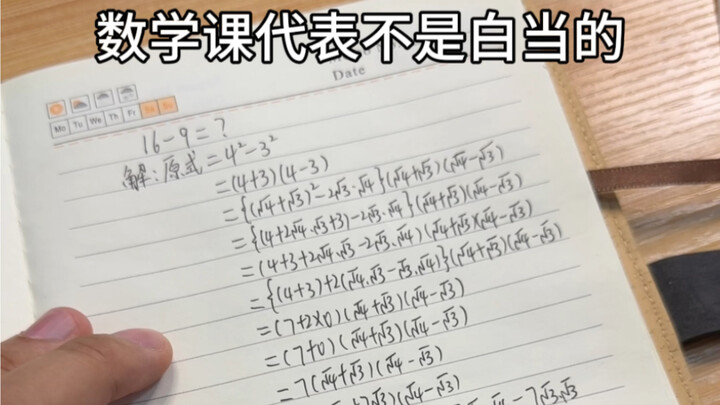 数学课代表不是白当的
Date
Mo Tu We Th Fr Sa Su
16-9=?
解:原式=4²-3²
=(4+3)(4-3)
={(√4+√3)²-2√3·√4}(√4+√3)(√4-√3)
={(4+2√4·√3+3)-2√3·√4}(√4+√3)(√4-√3)
=(4+3+2√4·√3-2√3·√4)(√4+√3)(√4-√3)
={(4+3)+2(√4·√3-√3·√4)}(√4+√3)(√4-√3)
=(7+2×0)(√4+√3)(√4-√3)
=(7+0)(√4+√3)(√4-√3)
=7(√4+√3)(√4-√3)
+7√3)(√4-√3)
-7√3·√3